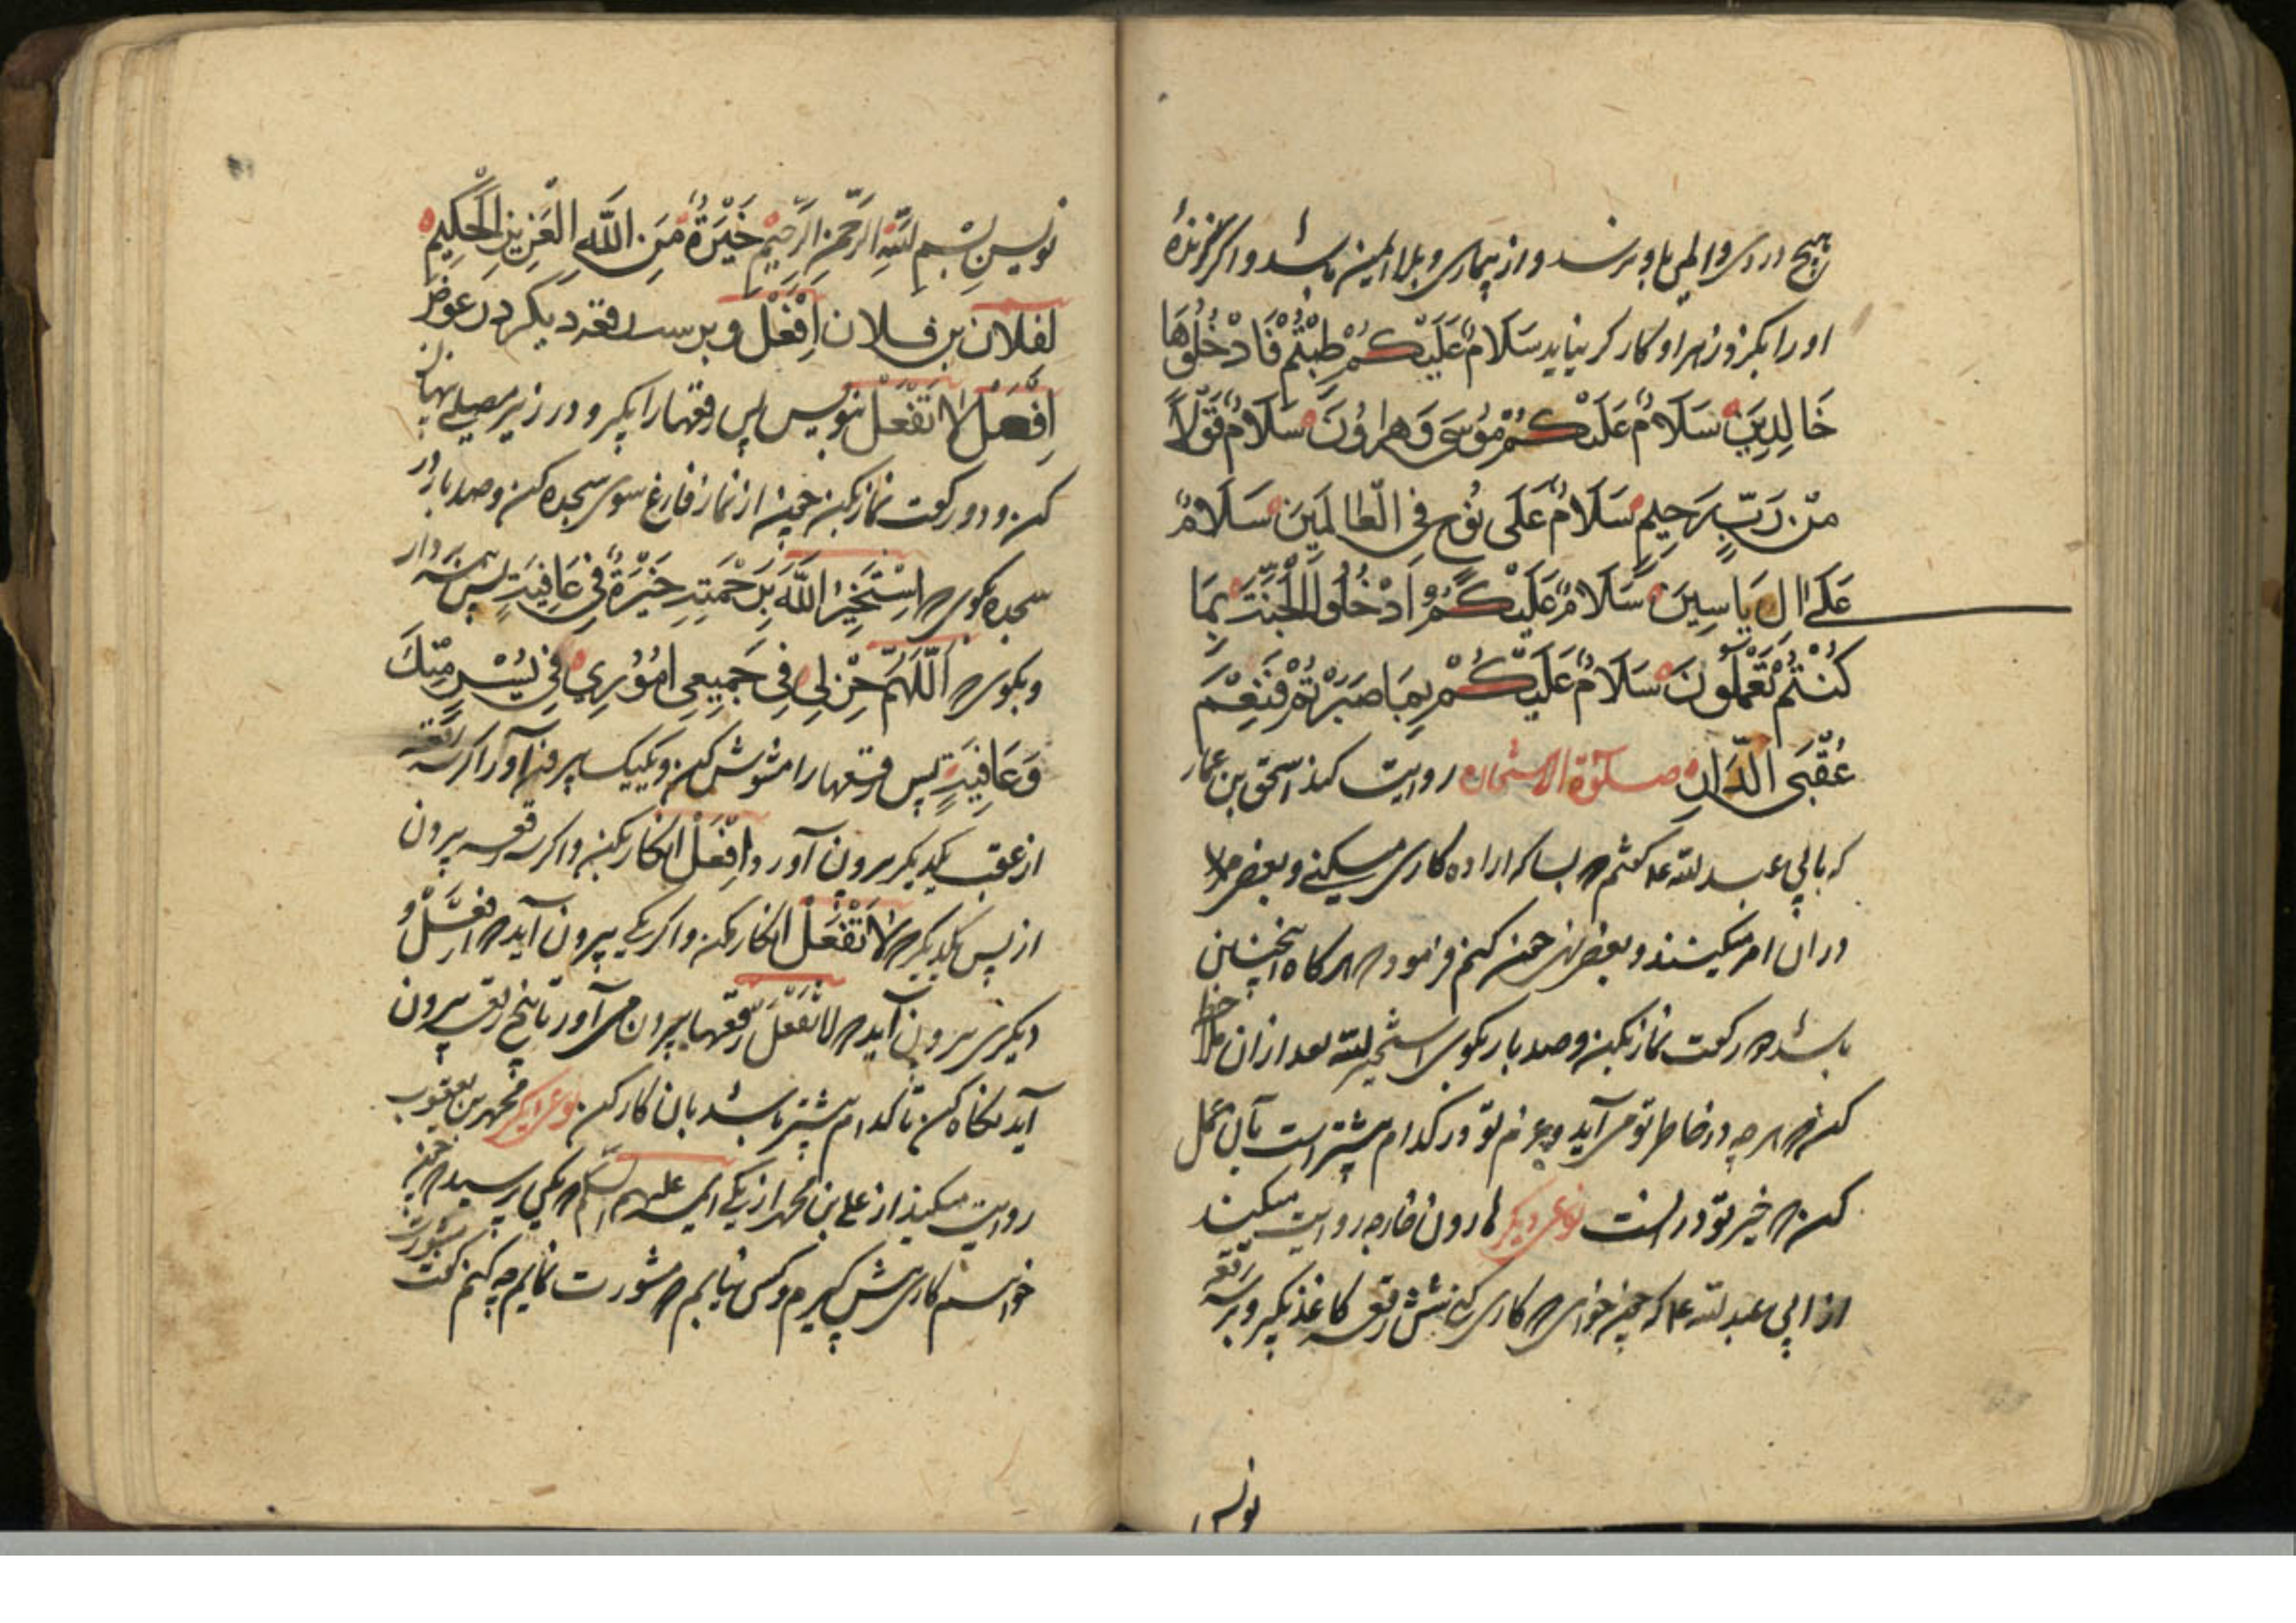 هیچ دردی والمی باو نرسد و از بیماری و بلا ایمن باشد و اگر گزنده
اورا بگزد زهر او کارگر نیاید سَلَامٌ عَلَيْكُمْ طِبْتُمْ فَادْخُلُوهَا
خَالِدِينَ سَلَامٌ عَلَيْكُمْ مُوسَى وَهَارُونَ سَلَامٌ قَوْلًا
مِنْ رَبٍّ رَحِيمٍ سَلَامٌ عَلَى نُوحٍ فِي الْعَالَمِينَ سَلَامٌ
عَلَى الِ يَاسِينَ سَلَامٌ عَلَيْكُمُ ادْخُلُوا الْجَنَّةَ بِمَا
كُنْتُمْ تَعْمَلُونَ سَلَامٌ عَلَيْكُمْ بِمَا صَبَرْتُمْ فَنِعْمَ
عُقْبَى الدَّارِ صلوة الاستخاره روایت کند اسحق بن عمار
که بابی عبد الله ع گفتم که بسا که اراده کاری میکنم و بعضی مرا
در ان امر میکنند و بعضی نهی من کنم فرمود که هر کاه اینچنین
باشد دو رکعت نماز بکن و صد بار بکوی استخیر الله بعد ازان ملاحظه
کن که هر چه در خاطر تو می آید و عزم تو در کدام بیشتر است بآن عمل
کن که خیر تو در انست نوعی دیکر هارون خارجه روایت میکند
از ابی عبد الله ع که چون خواهی که کاری کنی شش رقعه کاغذ بکیر و بر سه رقعه
نویس
نویس بِسْمِ اللَّهِ الرَّحْمَنِ الرَّحِيمِ خَيَرَةٌ مِنَ اللَّهِ الْعَزِيزِ الْحَكِيمِ
لفلان بن فلان اِفْعَلْ و بر سه رقعه دیکر در عوض
اِفْعَلْ لَا تَفْعَلْ بنویس پس رقعها را بکیر و در زیر مصلی پنهان
کن و دو رکعت نماز بکن چون از نماز فارغ شوی سجده کن و صد بار در
سجده بکوی که اَسْتَخِيرُ اللَّهَ بِرَحْمَتِهِ خَيَرَةً فِي عَافِيَةٍ پس سر بردار
و بکوی که اَللَّهُمَّ خِرْ لِي فِي جَمِيعِ امُورِي فِي يُسْرٍ مِنْكَ
وَعَافِيَةٍ پس رقعها را مشوش کن و یکیک بیرون آور اکر سه رقعه
از عقب یکدیکر بیرون آور دافْعَلْ ان کار بکن و اکر سه رقعه بیرون
از پس یکدیکر که لَا تَفْعَلْ ان کار مکن و اکر یکی بیرون آید که افعل و
دیکری بیرون آید که لا تفعل رقعها بیرون می آور تا پنج رقعه بیرون
آید نکاه کن تا کدام بیشتر باشد بان کار کن نوعی دیکر محمد بن یعقوب
روایت میکند از علی بن محمد از یکی ائمه علیهم السلم که یکی پرسید که چون
خواستم کاری پیش کیرم و کسی نیابم که مشورت نمایم چه کنم کفت مشورت